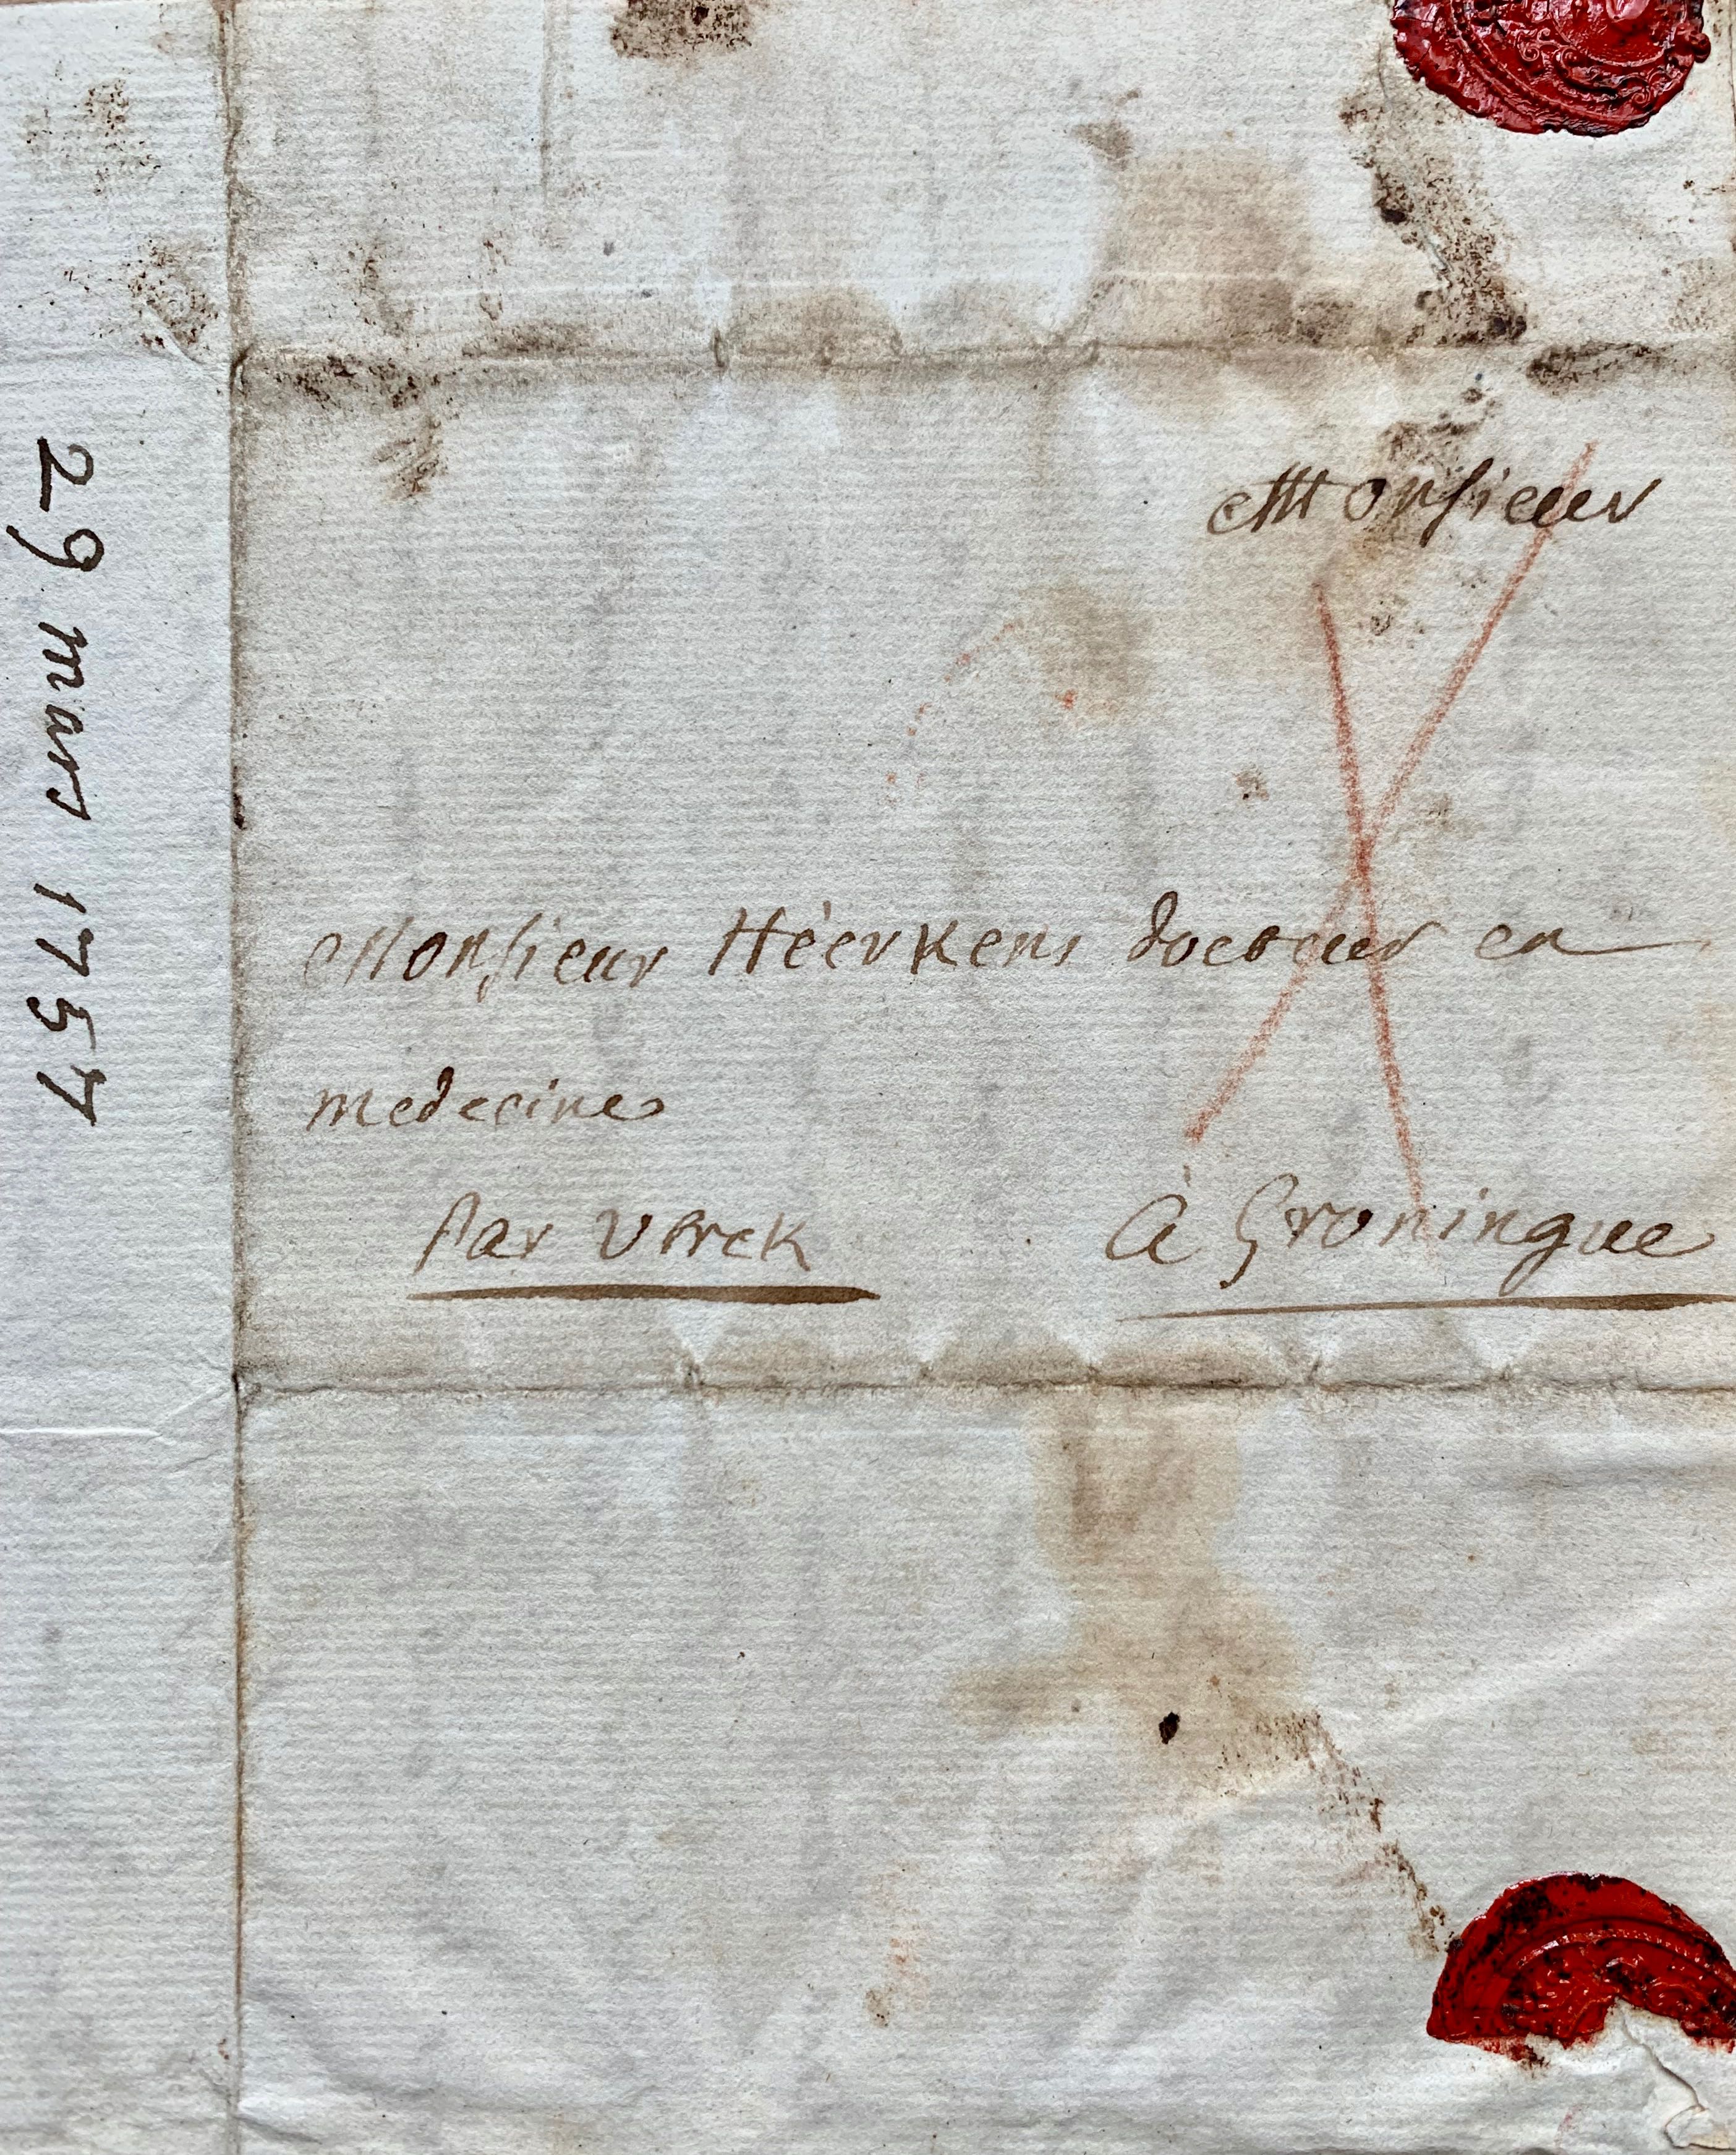 Monsieur
Monsieur Héerkens docteur en
medecine
par Utrek
à Groningue
29 mars 1757